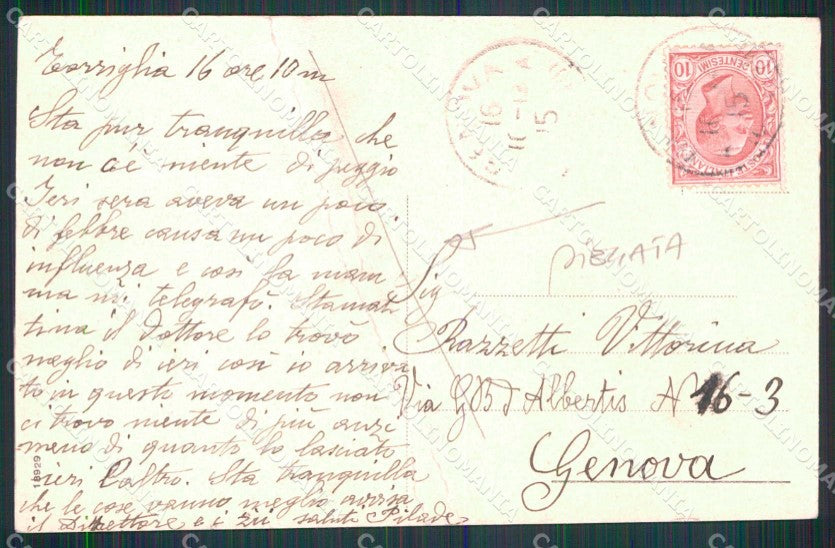 Torriglia 16 ore 10 m
Sta pur tranquilla che
non c'é niente di peggio
Ieri sera aveva un poco
di febbre causa un poco di
influenza e cosi la mam-
ma mi telegrafò. Stamat-
tina il dottore lo trovò
meglio di ieri così io arriva
to in questo momento non
ci trovo niente di più anzi
meno di quanto lo lasciato
ieri l'altro. Sta tranquilla
che le cose vanno meglio
il Direttore e i zii saluti Pilade
18929
16
15
CENTESIMI
10
10
16
15
PIEGATA
Sig
Razzetti Vittorina
Via GB d'Albertis N 16-3
Genova
CARTOLINOMANIA